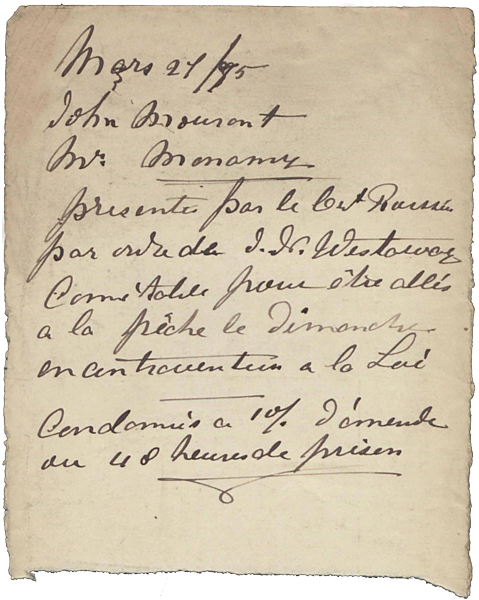 Mars 27/95
John Mourant
Mr. Monamy
présentés par le Cent. Roussin
par ordre de J. N. Westaway
Connétable pour être allés
a la pêche le Dimanche
en contravention a la Loi
Condamnés a 10/. d'amende
ou 48 heures de prison